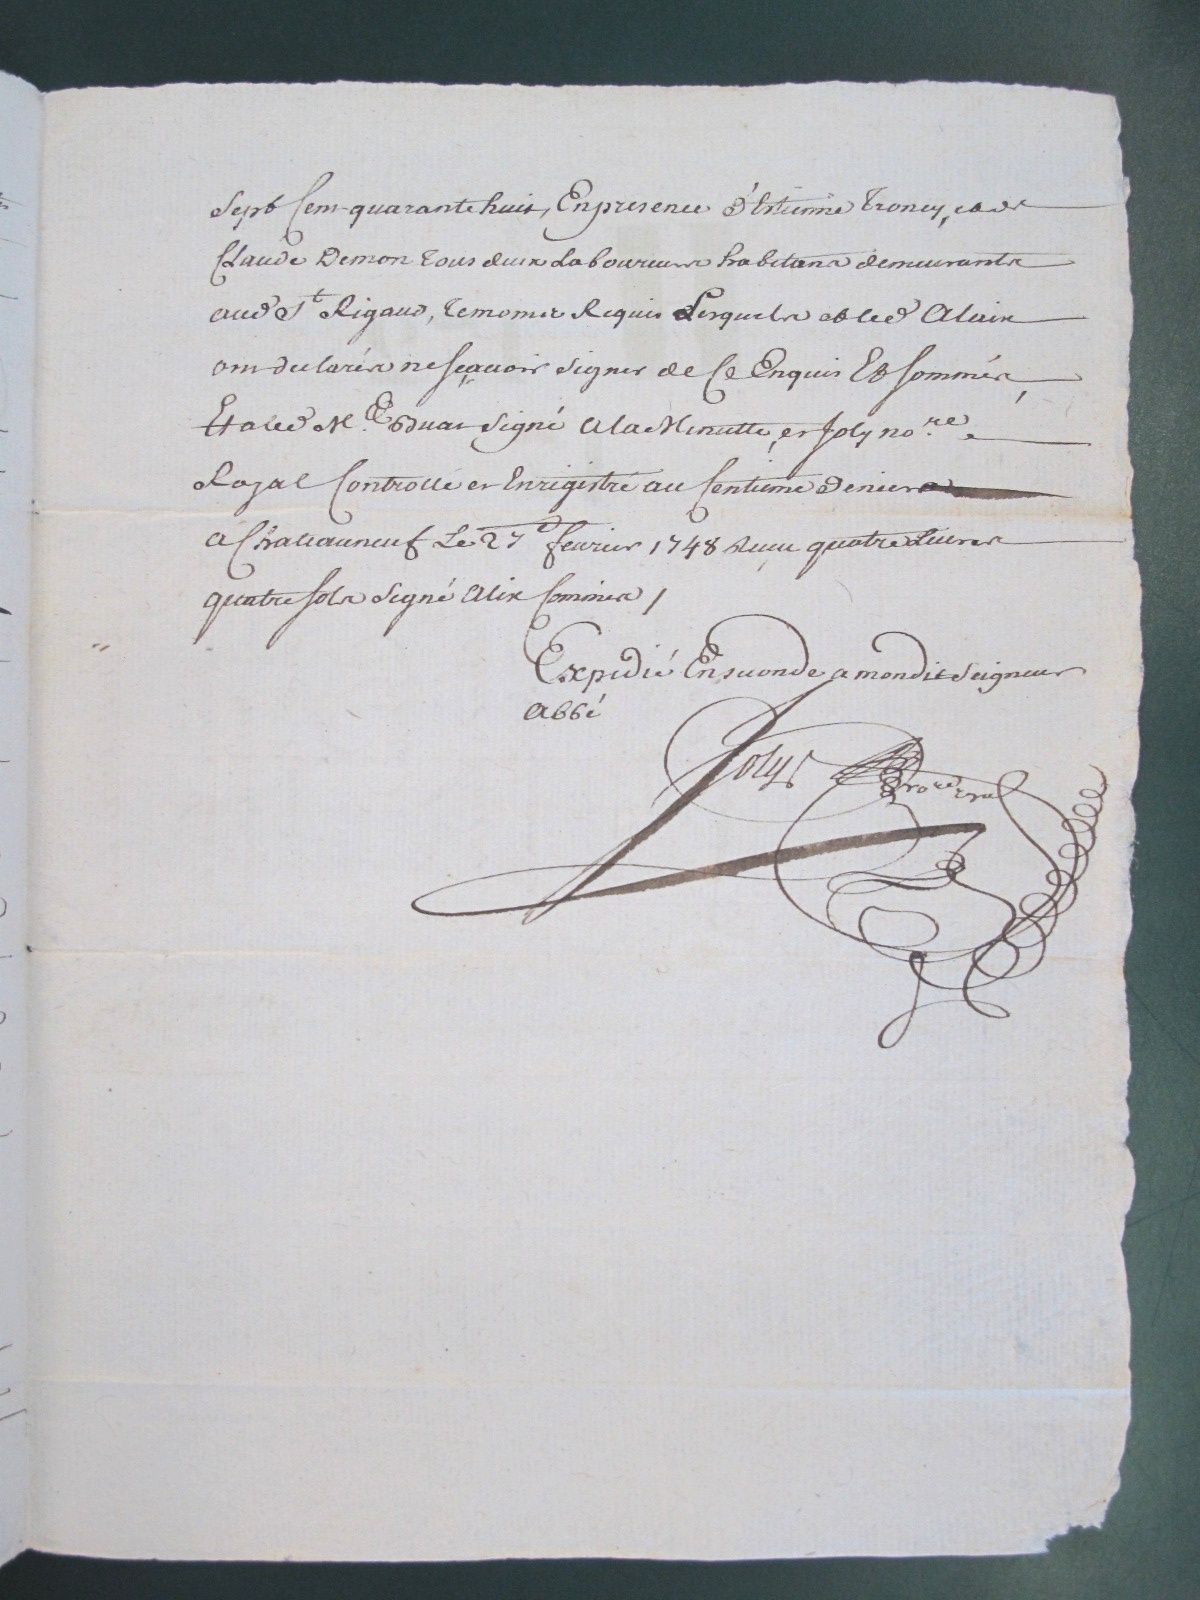 Sept Cent quarante huit, En presence d'Estienne Troncy, et de
Claude Demon tous deux Laboureurs habitans demeurants
aud St Rigaud, temoins Requis Lesquels et led Alaix
ont declarés ne sçavoir signer de Ce Enquis Et sommés,
Et a led Mr signé a la Minutte, et Joly nore
Royal Controllé et Enrigistré au Centiéme deniers
a Chateauneuf Le 27e fevrier 1748 Reçu quatre Livres
quatre sols signé Alix Commis /
Expedié En seconde a mondit Seigneur
Abbé
Joly
nore Royal